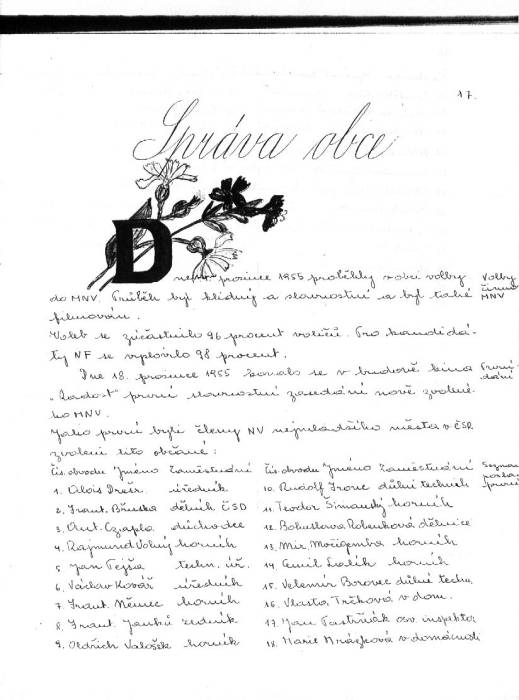 17.
Správa obce
Dne 4. prosince 1955 proběhly v obci volby
do MNV. Průběh byl klidný a slavnostní a byl také
filmován.
Voleb se zúčastnilo 96 procent voličů. Pro kandidá-
ty NF se vyslovilo 98 procent.
Dne 18. prosince 1955 konalo se v budově kina
„Radost" první slavnostní zasedání nově zvolené-
ho MNV.
Jako první byli členy NV nejmladšího města v ČSR
zvoleni tito občané:
Volby
MNV
První
dání
Čís. obvodu Jméno Zaměstnání
1. Alois úředník
2. Frant. dělník ČSD
3. Ant. Czapla důchodce
4. Rajmund Volný horník
5. Jan Fejša techn. úř.
6. Václav Kovář úředník
7. Frant. Němec horník
8. Frant. Janků zedník
9. Oldřich Valošek horník
Čís. obvodu Jméno Zaměstnání
10. Rudolf důlní technik
11. Teodor Šimanský horník
12. Bohuslava dělnice
13. Mir. Močigemba horník
14. Emil horník
15. Velemír Borovec důlní techn.
16. Vlasta Trčková v dom.
17. Jan Pastrňák osv. inspektor
18. Marie Mrázková v domácnosti
Seznam
první